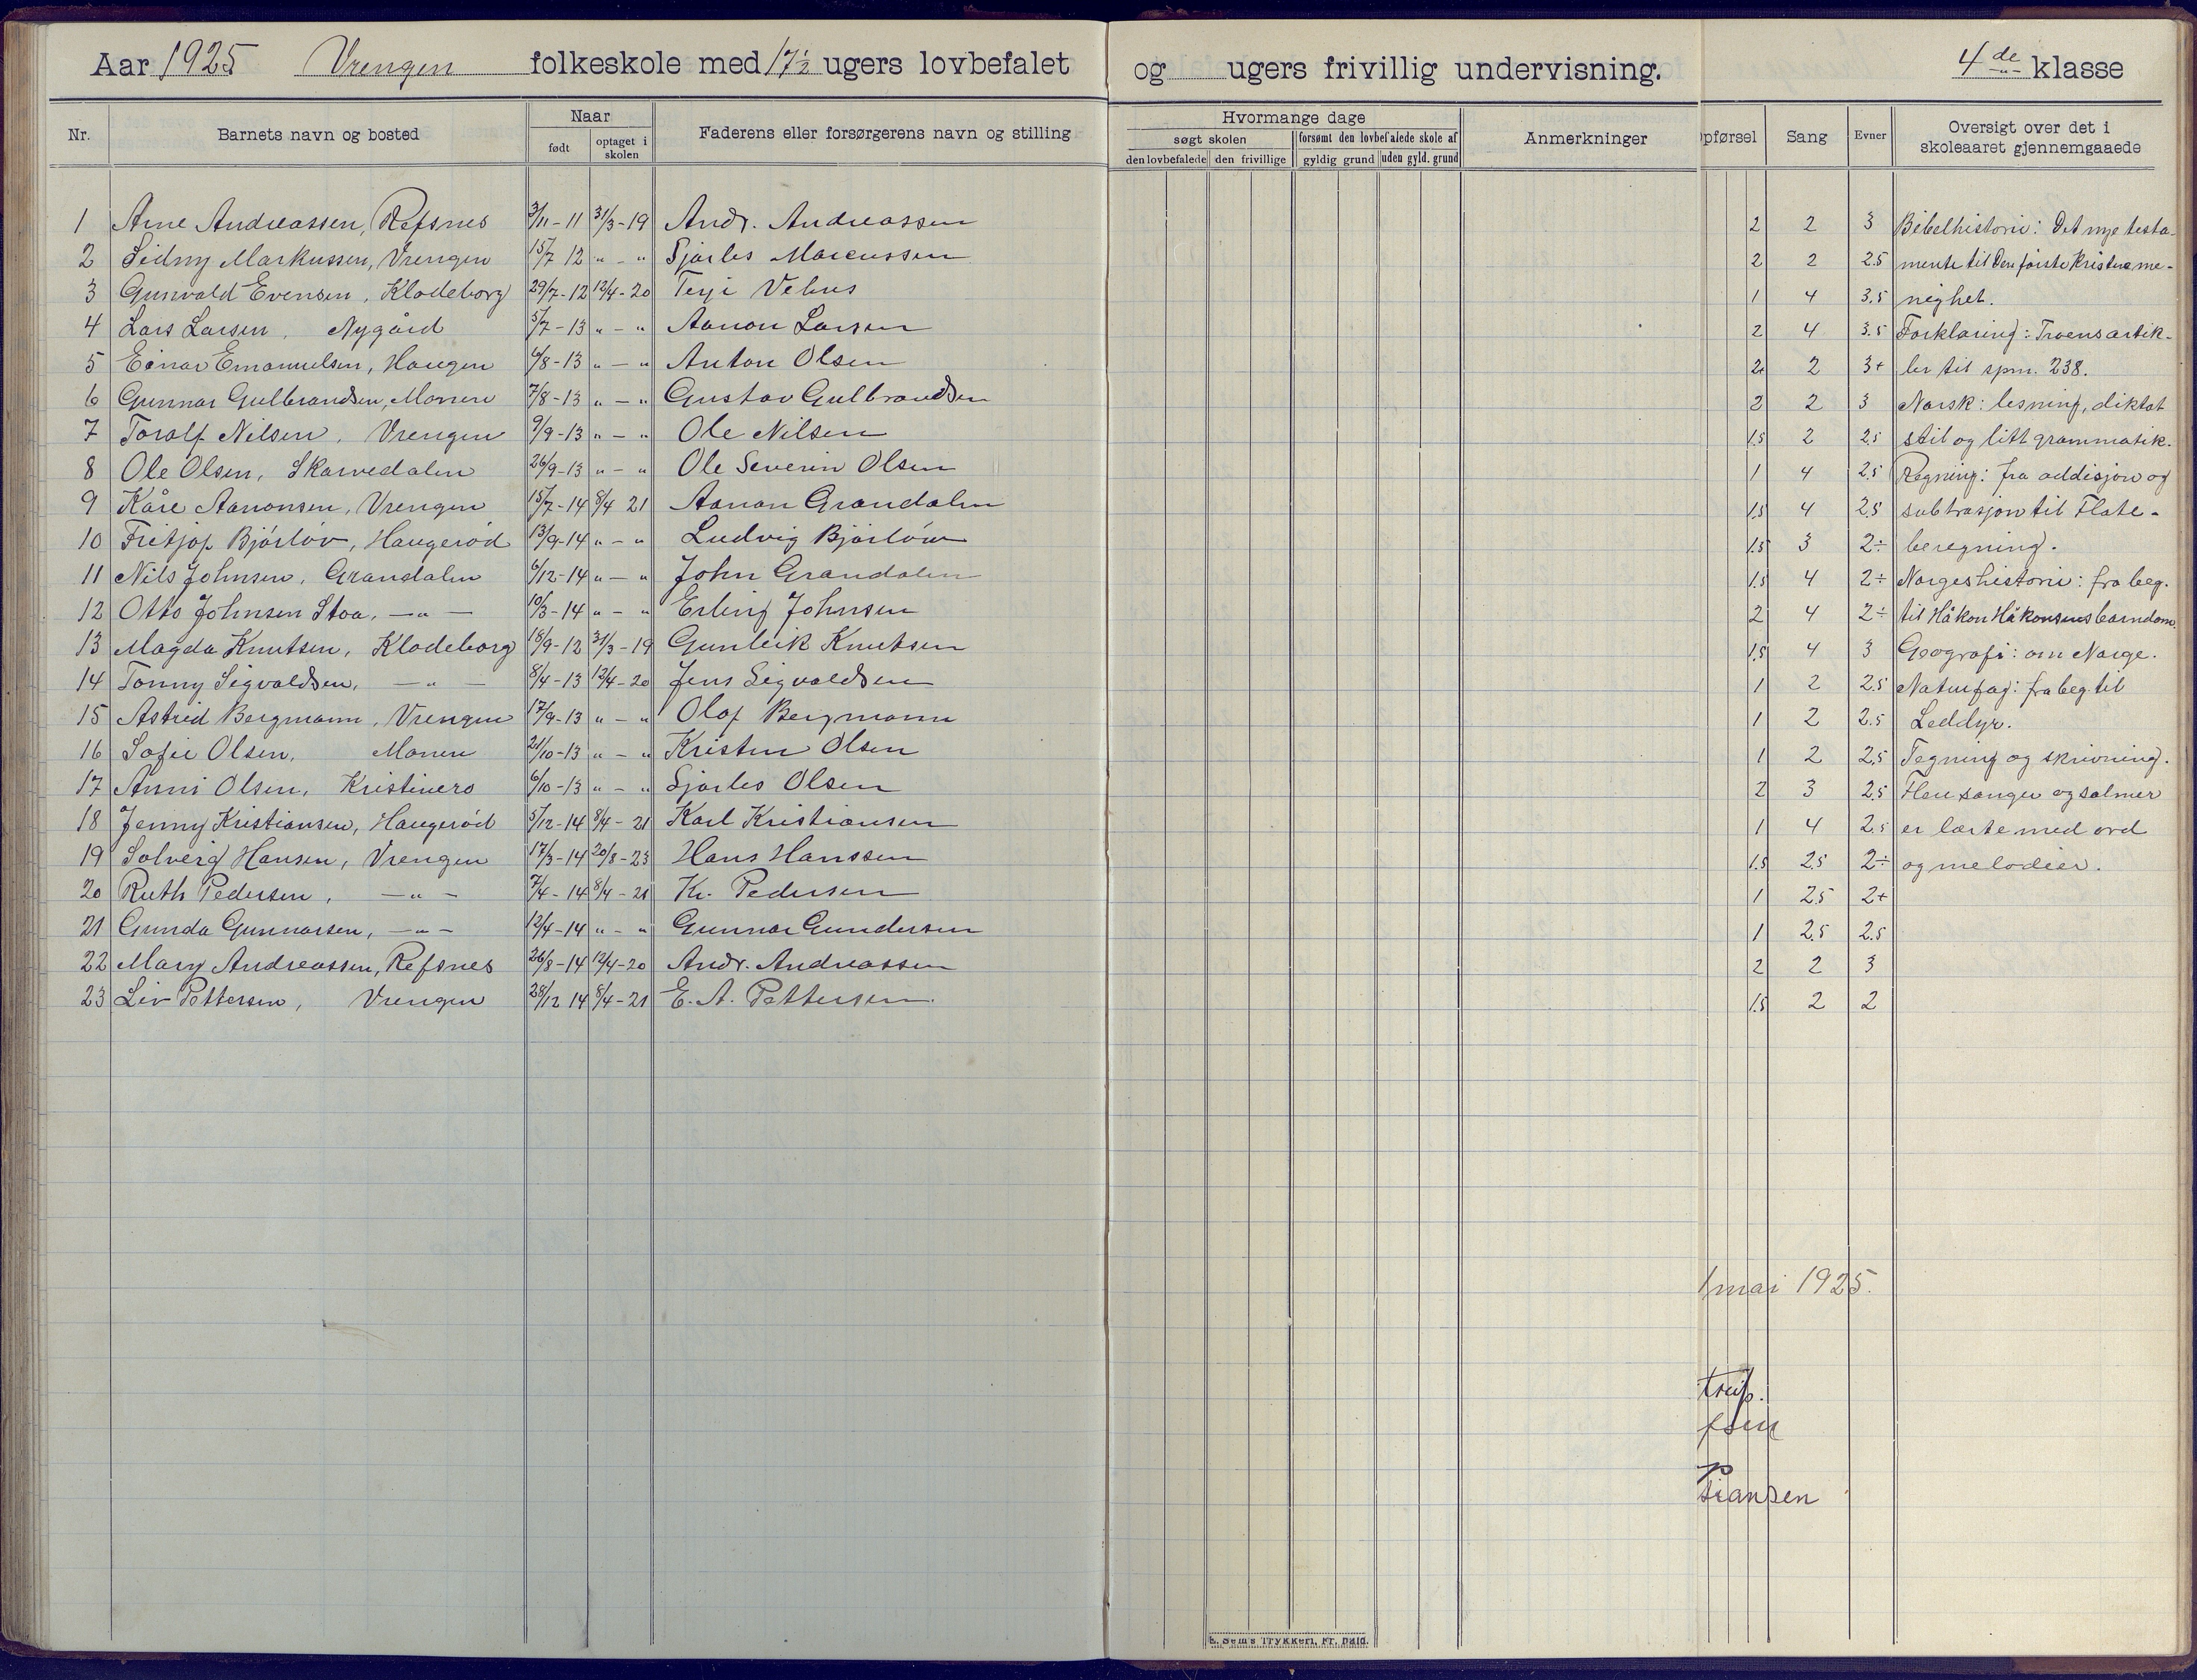 Aar 1925 Vrengen folkeskole med 17½ ugers lovbefalet og ugers frivillig undervisning. 4de klasse
Nr. Barnets navn og bosted Naar født optaget i skolen Faderens eller forsørgerens navn og stilling Hvormange dage søgt skolen den lovbefalede den frivillige forsømt den lovbefalede skole af gyldig grund uden gyld. grund Anmerkninger pførsel Sang Evner Oversigt over det i skoleaaret gjennemgaaede
1 Arne Andreassen, Refsnes 3/11-11 31/3-19 Andr. Andreassen 2 2 3 Bibelhistorie: Det nye testa-
2 Sidny Markussen, Vrengen 15/7 12 " - " Sjarles Marcussen 2 2 2.5 mente til Den første kristne me-
3 Gunvald Evensen, Klodeborg 29/7-12 12/4-20 Terje Vehus 1 4 3.5 nighet.
4 Lars Larsen, Nygård 5/7-13 " - " Aanon Larsen 2 4 3.5 Forklaring: Troens artik-
5 Einar Emanuelsen, Haugen 6/8-13 " - " Anton Olsen 2+ 2 3+ ler til spm. 238.
6 Gunnar Gulbrandsen, Monen 7/8-13 " - " Gustav Gulbrandsen 2 2 3 Norsk: lesning, diktat
7 Toralf Nilsen, Vrengen 9/9-13 " - " Ole Nilsen 1.5 2 2.5 stil og litt grammatik.
8 Ole Olsen, Skarvedalen 26/9-13 " - " Ole Severin Olsen 1 4 2.5 Regning: fra addisjon og
9 Kåre Aanonsen, Vrengen 15/7-14 8/4 21 Aanon Grandalen 1.5 4 2.5 subtrasjon til Flate-
10 Fritjof Bjørløv, Haugerød 13/9-14 " - " Ludvig Bjørløw 1.5 3 2÷ beregning.
11 Nils Johnsen, Grandalen 6/12-14 " - " John Grandalen 1.5 4 2÷ Norgeshistorie: fra beg.
12 Otto Johnsen Stoa, -"- 10/3-14 " - " Erling Johnsen 2 4 2÷ til Håkon Håkonsens barndom.
13 Magda Knutsen, Klodeborg 18/9-12 31/3-19 Gunleik Knutsen 1.5 4 3 Geografi: om Norge.
14 Tonny Sigvaldsen, -"- 8/4-13 12/4-20 Jens Sigvaldsen 1 2 2.5 Naturfag: fra beg til
15 Astrid Bergmann, Vrengen 17/9-13 " - " Olaf Bergmann 1 2 2.5 Leddyr.
16 Sofie Olsen, Monen 21/10-13 " - " Kristen Olsen 1 2 2.5 Tegning og skrivning.
17 Anni Olsen, Kristinero 6/10-13 " - " Sjarles Olsen 2 3 2.5 Flere sanger og salmer
18 Jenny Kristiansen, Haugerød 5/12-14 8/4-21 Karl Kristiansen 1 4 2.5 er lærte med ord
19 Solveig Hansen, Vrengen 17/3-14 20/8-23 Hans Hanssen 1.5 2.5 2÷ og melodier.
20 Ruth Pedersen, -"- 7/4-14 8/4-21 Kr. Pedersen 1 2.5 2+
21 Gunda Gunnarsen, -"- 12/4-14 " - " Gunnar Gundersen 1 2.5 2.5
22 Mary Andreassen, Refsnes 26/8-14 12/4-20 Andr. Andreassen 2 2 3
23 Liv Pettersen, Vrengen 28/12 14 8/4-21 E. A. Pettersen. 1.5 2 2
1 mai 1925.
fsen
tiansen